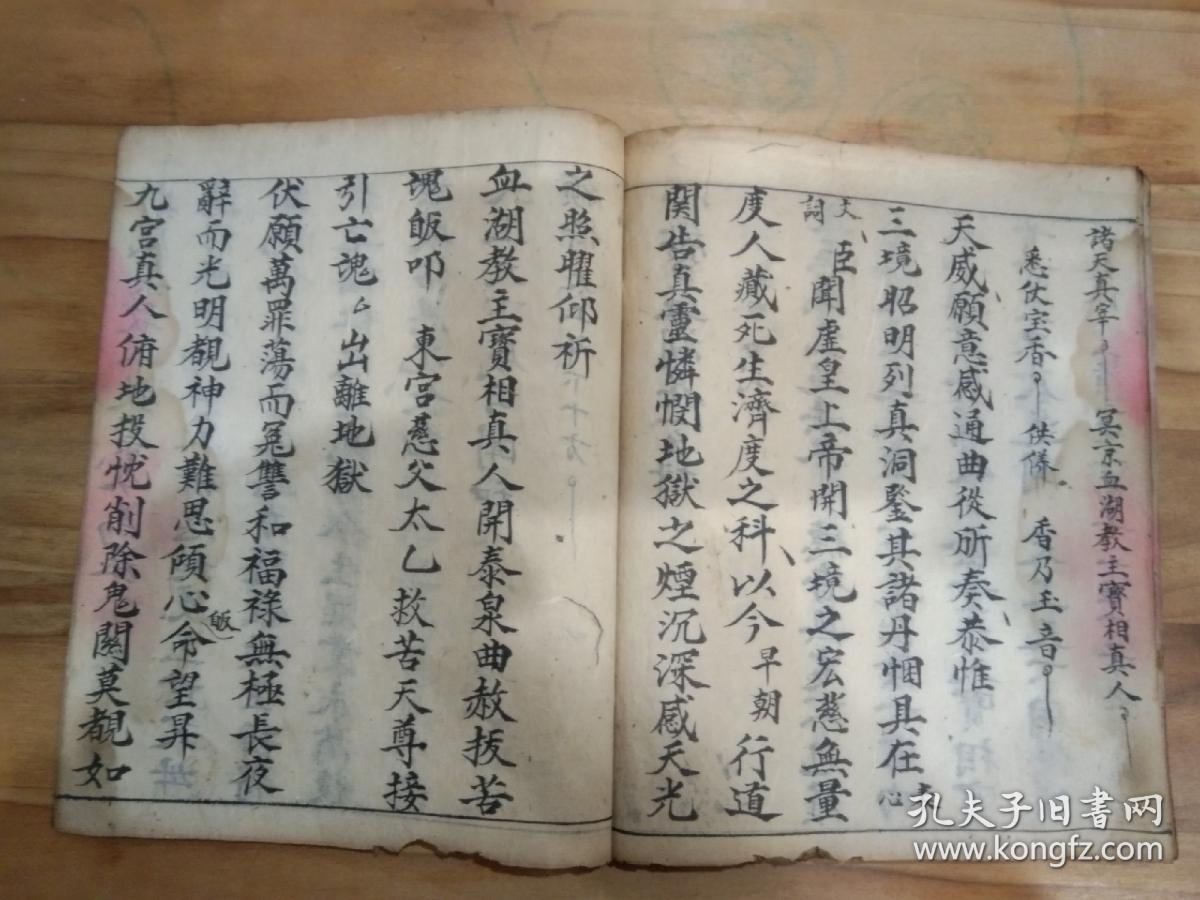 諸天真宰 冥京血湖教主寶相真人
悉仗宝香 供俻 香乃玉音
天威願意感通曲從所奏恭惟
三境昭明列真洞鋻其諸丹悃具在
心
文
詞
臣聞虛皇上帝開三境之宏慈無量
度人藏死生濟度之科以今早朝行道
関告真靈憐憫地獄之煙沉深感天光
之照曜仰祈
血湖教主寶相真人開泰泉曲赦拔苦
魂皈叩 東宮慈父太乙救苦天尊接
引亡魂〻出離地獄
伏願萬罪蕩而冤讐和福祿無極長夜
辭而光明覩神力難思傾心命望昇
皈
九宮真人俯地投忱削除鬼關莫覩如
孔夫子旧书网
www.kongfz.com